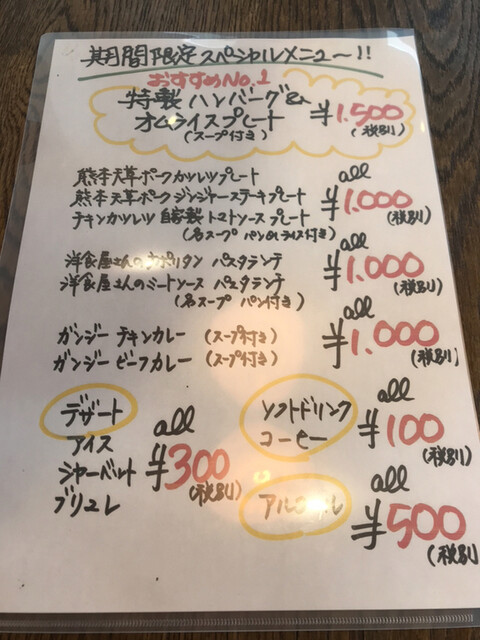 期間限定スペシャルメニュ〜!!
おすすめNo.1
特製 ハンバーグ&
オムライスプレート ¥1.500
(スープ付き) (税別)
熊本天草ポークカツレツプレート all
熊本天草ポークジンジャーステーキプレート ¥1.000
チキンカツレツ 自家製トマトソースプレート (税別)
(各スープ パンorライス付き)
洋食屋さんのナポリタン パスタランチ all
洋食屋さんのミートソース パスタランチ ¥1.000
(各スープ パン付き) (税別)
ガンジー チキンカレー (スープ付き) all
ガンジー ビーフカレー (スープ付き) ¥1.000
(税別)
デザート all
アイス ¥300
シャーベット (税別)
ブリュレ
ソフトドリンク all
コーヒー ¥100
(税別)
アルコール all
¥500
(税別)